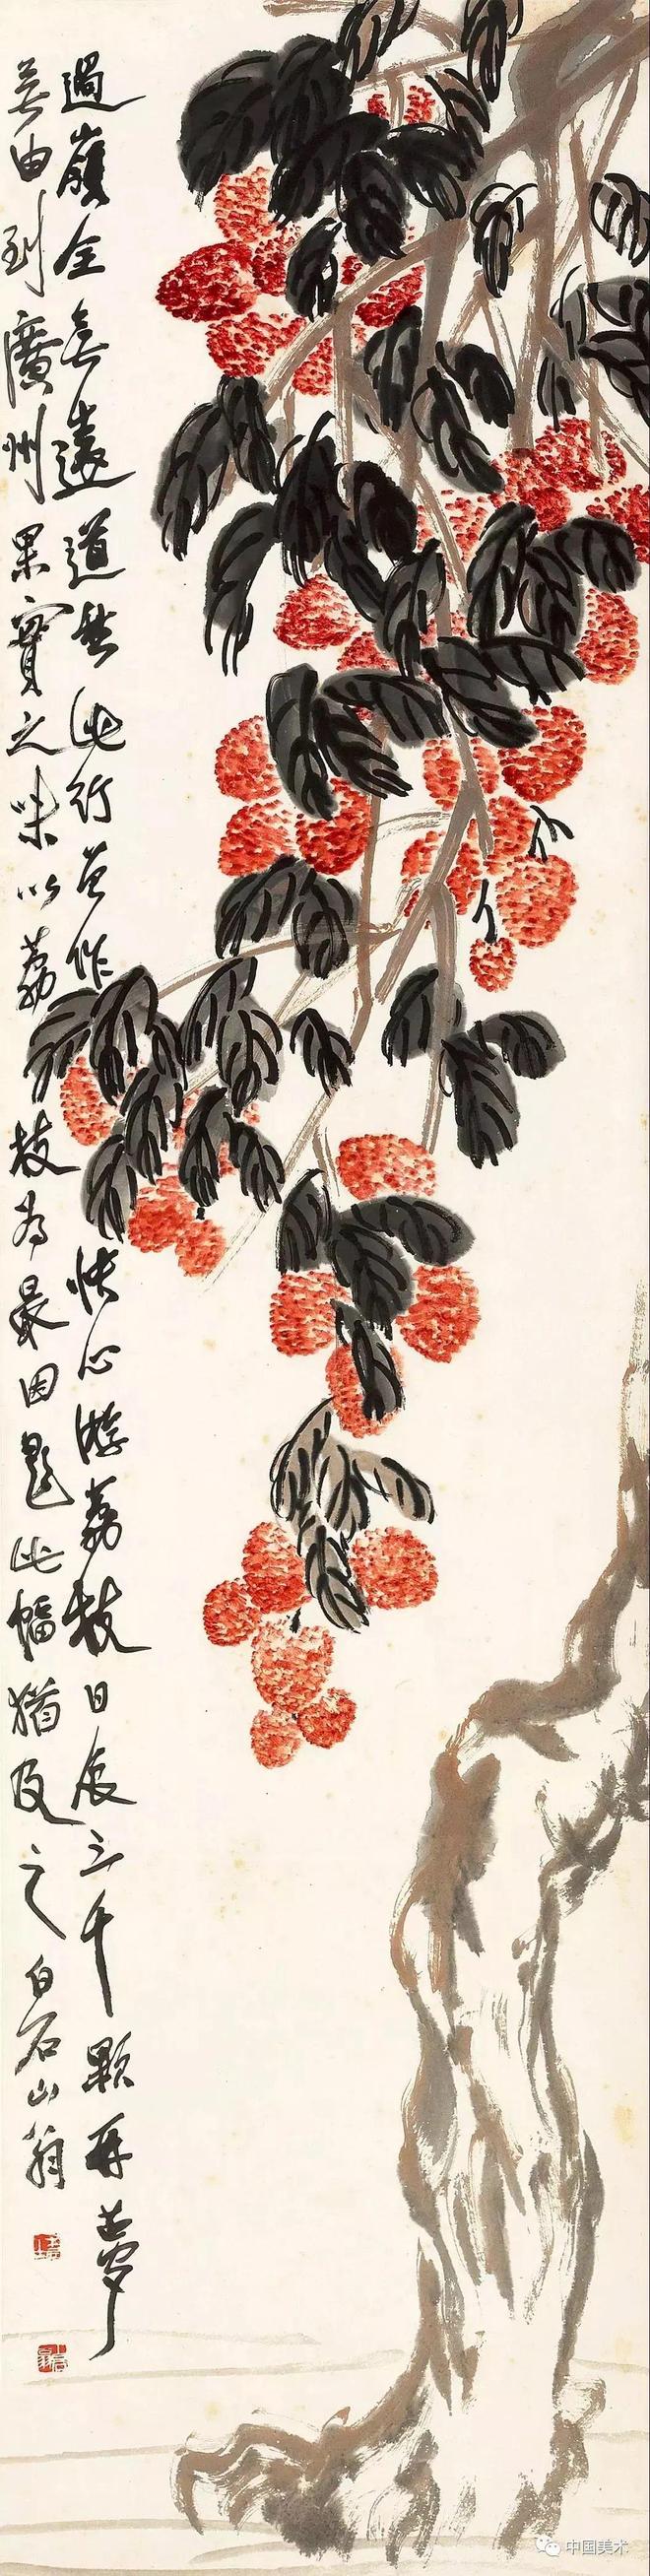 過嶺全無遠道愁此行曾作快心游荔枝日食三千顆再夢
無由到廣州果實之味以荔枝為最因題此幅猶及之白石山翁
中国美术